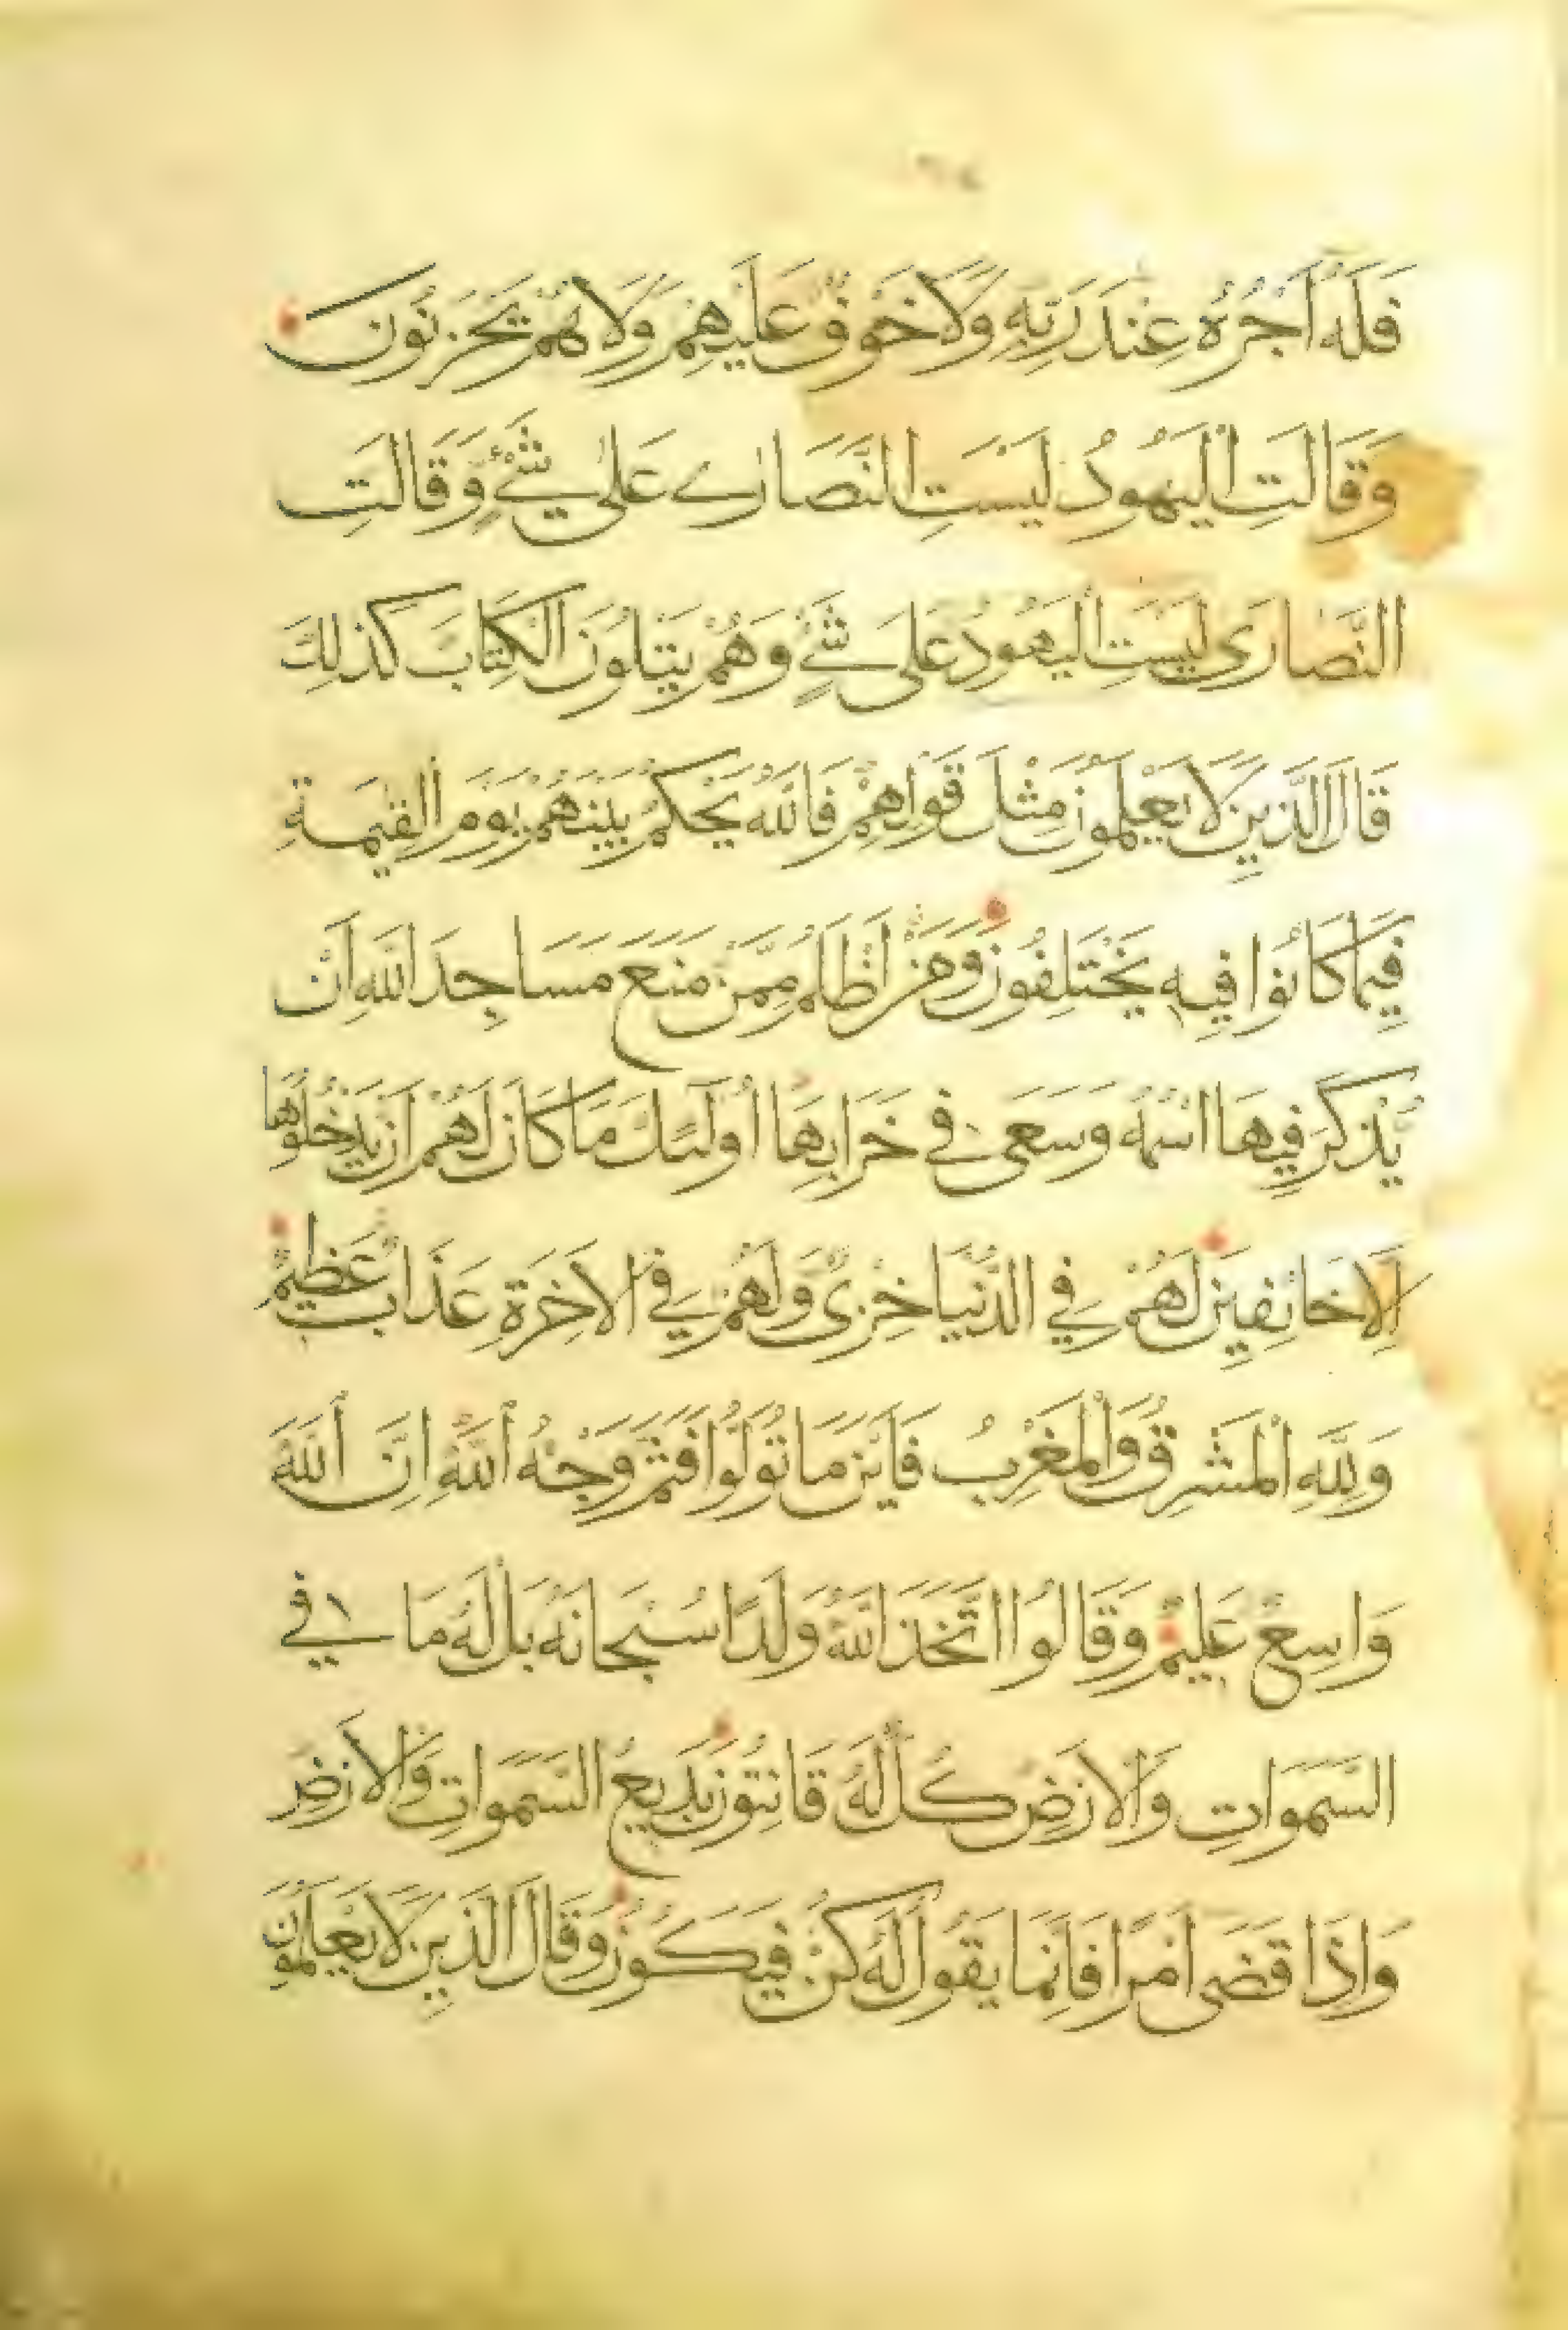 فَلَهُ أَجْرُهُ عِنْدَ رَبِّهِ وَلَا خَوْفٌ عَلَيْهِمْ وَلَا هُمْ يَحْزَنُونَ
وَقَالَتِ الْيَهُودُ لَيْسَتِ النَّصَارَى عَلَى شَيْءٍ وَقَالَتِ
النَّصَارَى لَيْسَتِ الْيَهُودُ عَلَى شَيْءٍ وَهُمْ يَتْلُونَ الْكِتَابَ كَذَلِكَ
قَالَ الَّذِينَ لَا يَعْلَمُونَ مِثْلَ قَوْلِهِمْ فَاللَّهُ يَحْكُمُ بَيْنَهُمْ يَوْمَ الْقِيمَةِ
فِيمَا كَانُوا فِيهِ يَخْتَلِفُونَ وَمَنْ أَظْلَمُ مِمَّنْ مَنَعَ مَسَاجِدَ اللَّهِ أَنْ
يُذْكَرَ فِيهَا اسْمُهُ وَسَعَى فِي خَرَابِهَا أُولَئِكَ مَا كَانَ لَهُمْ أَنْ يَدْخُلُوهَا
إِلَّا خَائِفِينَ لَهُمْ فِي الدُّنْيَا خِزْيٌ وَلَهُمْ فِي الْآخِرَةِ عَذَابٌ عَظِيمٌ
وَلِلَّهِ الْمَشْرِقُ وَالْمَغْرِبُ فَأَيْنَ مَا تُوَلُّوا فَثَمَّ وَجْهُ اللَّهِ إِنَّ اللَّهَ
وَاسِعٌ عَلِيمٌ وَقَالُوا اتَّخَذَ اللَّهُ وَلَدًا سُبْحَانَهُ بَلْ لَهُ مَا فِي
السَّمَوَاتِ وَالْأَرْضِ كُلٌّ لَهُ قَانِتُونَ بَدِيعُ السَّمَوَاتِ وَالْأَرْضِ
وَإِذَا قَضَى أَمْرًا فَإِنَّمَا يَقُولُ لَهُ كُنْ فَيَكُونُ وَقَالَ الَّذِينَ لَا يَعْلَمُونَ